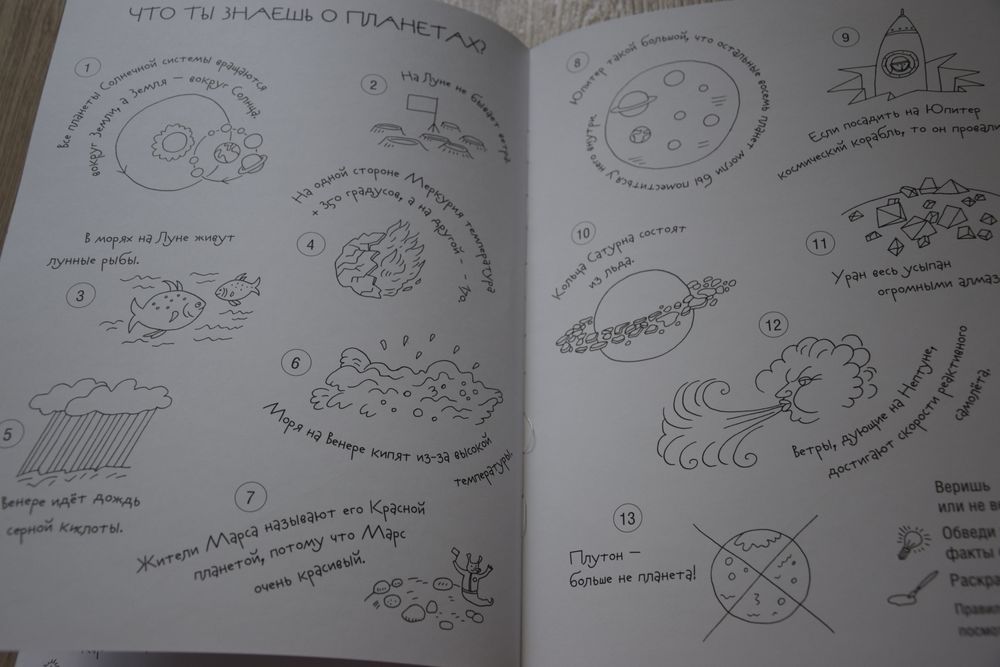 ЧТО ТЫ ЗНАЕШЬ О ПЛАНЕТАХ?
1
Все планеты Солнечной системы вращаются
вокруг Земли, а Земля — вокруг Солнца.
2
На Луне не бывает ветра
В морях на Луне живут
лунные рыбы.
3
На одной стороне Меркурия температура
+ 350 градусов, а на другой –
4
5
Венере идёт дождь
серной кислоты.
6
Моря на Венере кипят из-за высокой
температуры.
7
Жители Марса называют его Красной
планетой, потому что Марс
очень красивый.
8
Юпитер такой большой, что остальные восемь планет могли бы поместиться у него внутри
9
Если посадить на Юпитер
космический корабль, то он
10
Кольца Сатурна состоят
из льда.
11
Уран весь усыпан
огромными
12
Ветры, дующие на Нептуне,
достигают скорости реактивного
самолёта.
13
Плутон —
больше не планета!
Веришь
или не
Обведи
факты